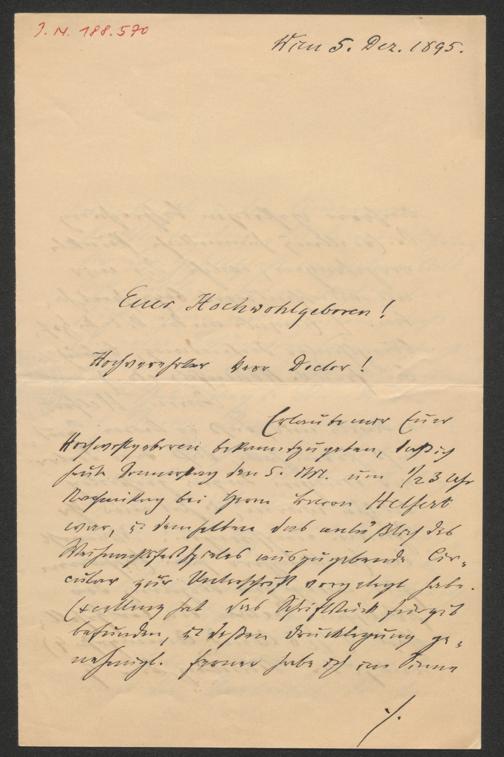 J. N. 188.590
Wien 5. Dez. 1895.
Euer Hochwohlgeboren!
Hochverehrter Herr Doctor!
Erlaube mir Euer
Hochwohlgeboren bekanntzugeben, daß ich
heute Donnerstag den 5. um 1/2 3 Uhr
Nachmittag bei Herrn Baron Helfert
war, u demselben das anläßlich des
Weihnachtsfestspieles auszugebende Cir-
cular zur Unterschrift vorgelegt habe.
Excellenz hat das Schriftstück für gut
befunden, u deßen Drucklegung ge-
nehmigt. Ferner habe ich im Sinne
./.